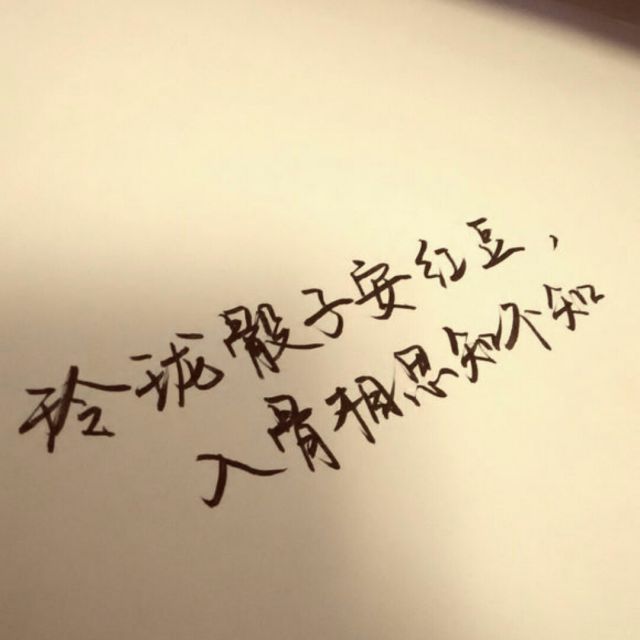 玲珑骰子安红豆，
入骨相思知不知